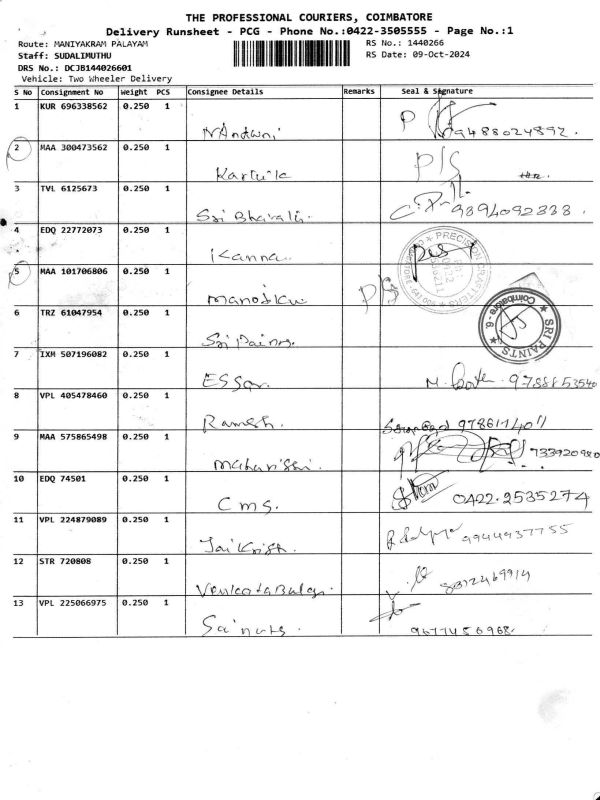 THE PROFESSIONAL COURIERS, COIMBATORE
Delivery Runsheet - PCG - Phone No.:0422-3505555 - Page No.:1
Route: MANIYAKRAM PALAYAM RS No.: 1440266
Staff: SUDALIMUTHU RS Date: 09-Oct-2024
DRS No.: DCJB144026601
Vehicle: Two Wheeler Delivery
S No Consignment No Weight PCS Consignee Details Remarks Seal & Signature
1 KUR 696338562 0.250 1
9488024892.
2 MAA 300473562 0.250 1 P/S
Kartik
3 TVL 6125673 0.250 1
Sri Bharath. 9894092338.
4 EDQ 22772073 0.250 1
Kanna.
5 MAA 101706806 0.250 1
Manojku P/S
6 TRZ 61047954 0.250 1
Sri Paints. SRI PAINTS Coimbatore - 6.
7 IXM 507196082 0.250 1
ESSar. 9788853540
8 VPL 405478460 0.250 1
Ramesh.
9 MAA 575865498 0.250 1
Maharishi. 733920980
10 EDQ 74501 0.250 1
CMS. 0422.2535274
11 VPL 224879089 0.250 1
Jaikrish. 9944937755
12 STR 720808 0.250 1
Venkatabalaji 8012469914
13 VPL 225066975 0.250 1
9677456968.